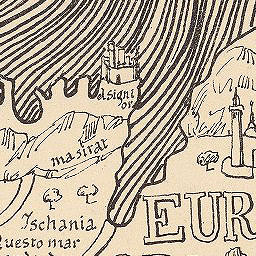 asigni
or
masirat
Ischania
Questo mar
EUR